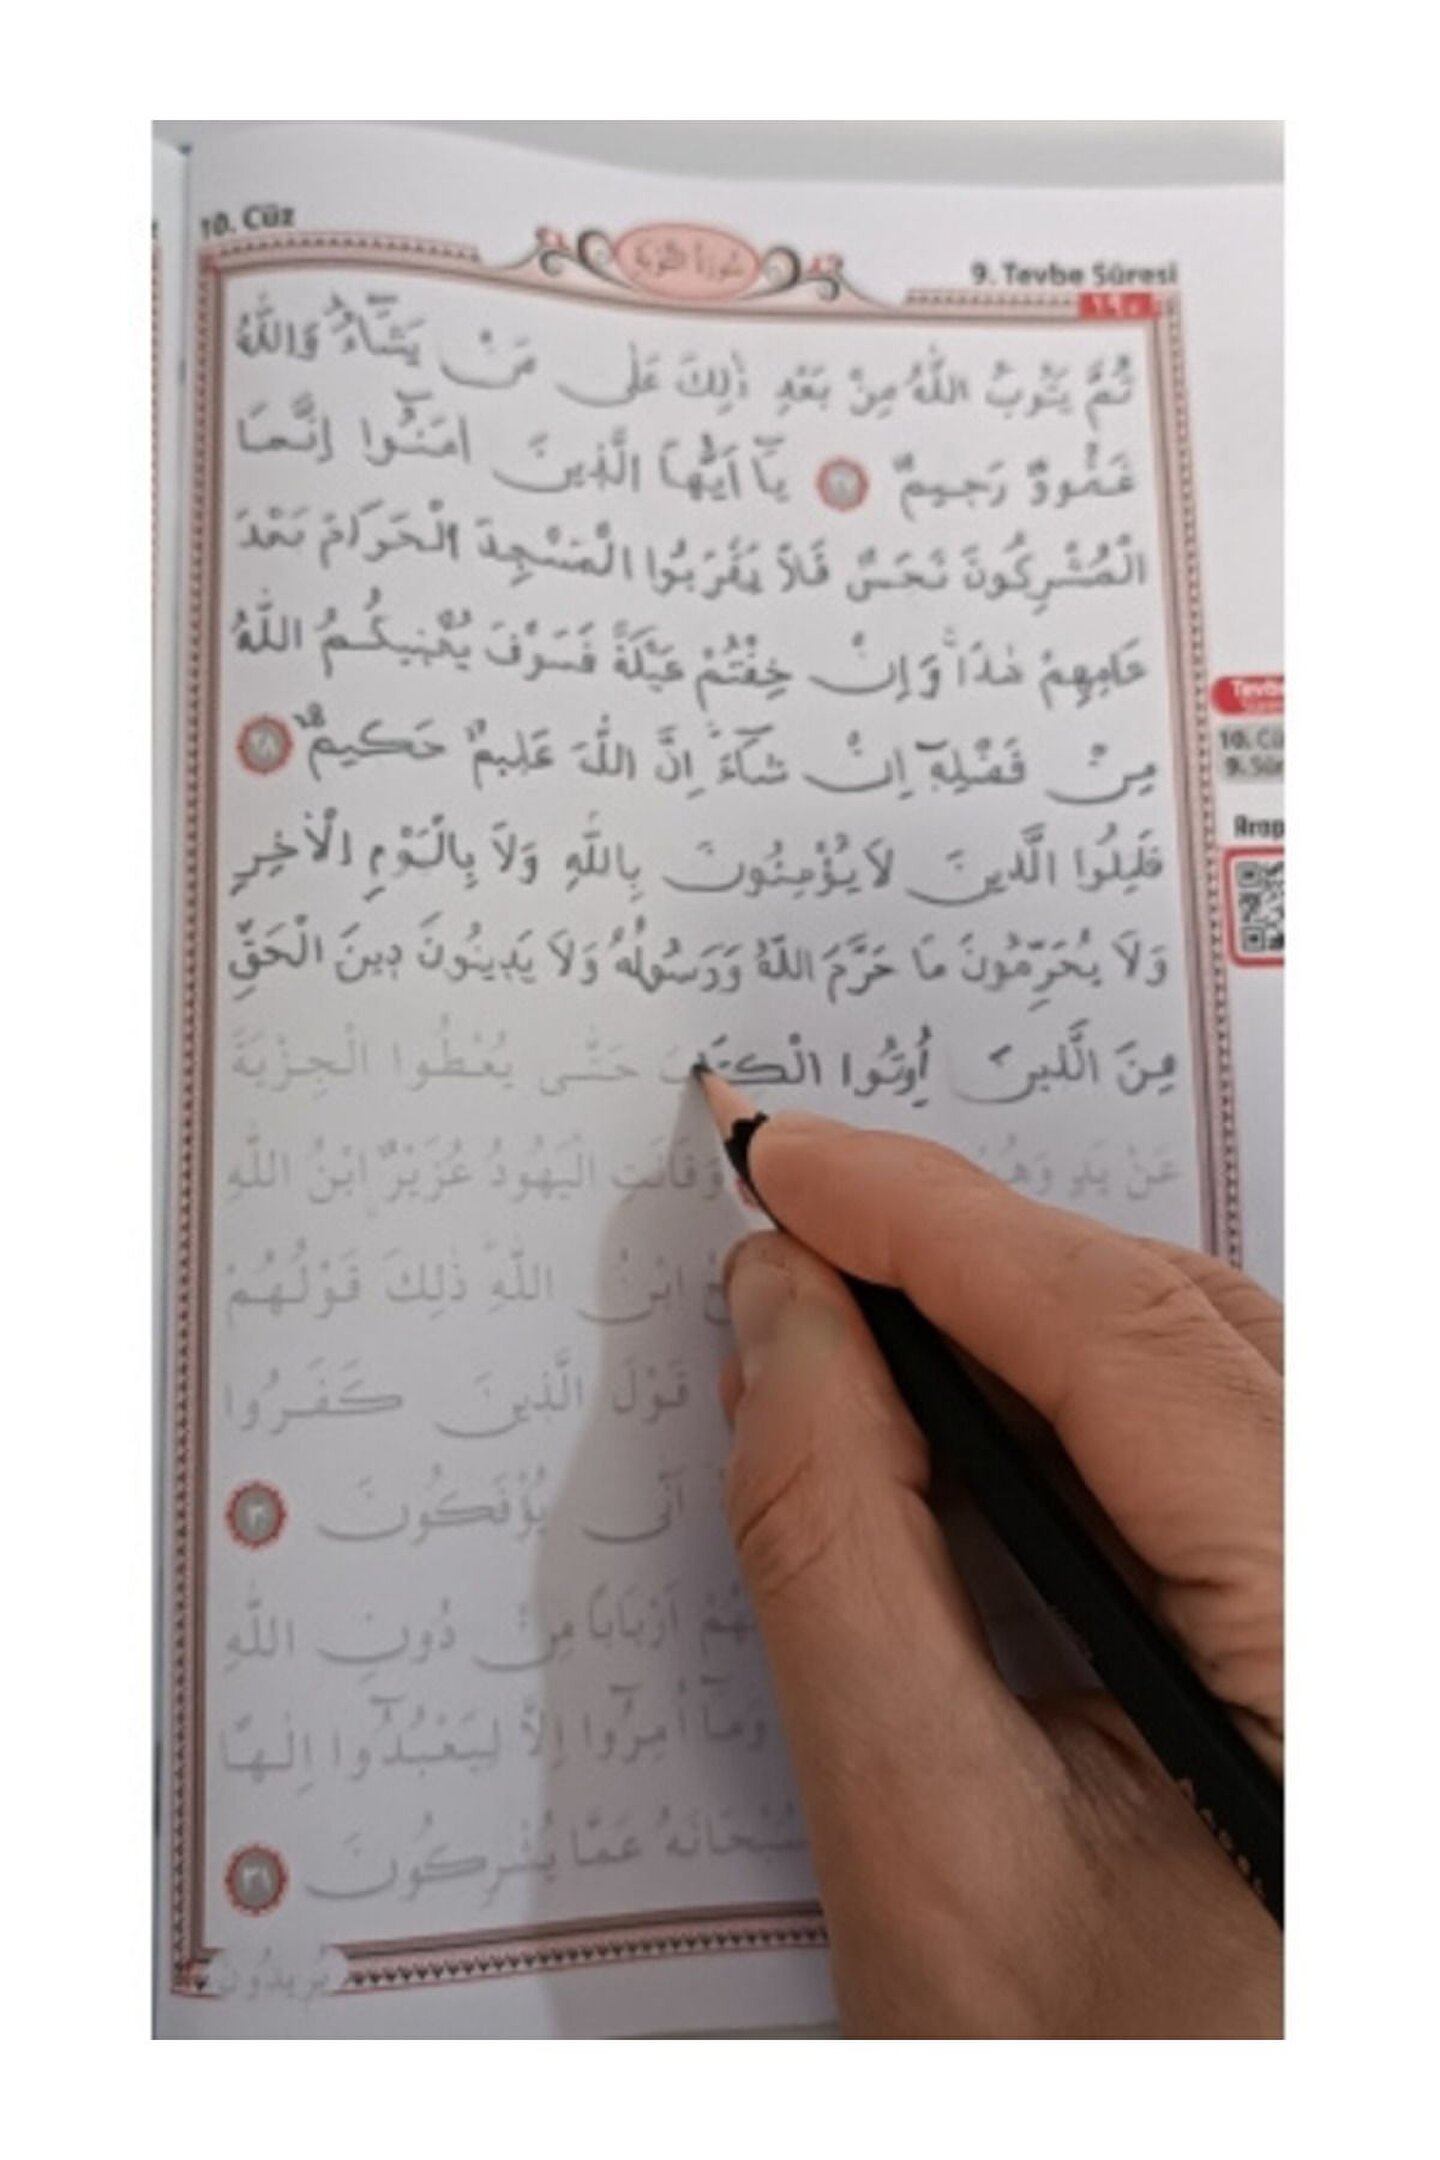 10. Cüz
9. Tevbe Sûresi
١٩٠
ثُمَّ يَتُوبُ اللّٰهُ مِنْ بَعْدِ ذٰلِكَ عَلٰى مَنْ يَشَٓاءُ وَاللّٰهُ
غَفُورٌ رَحِيمٌ يَٓا اَيُّهَا الَّذِينَ اٰمَنُٓوا اِنَّمَا
الْمُشْرِكُونَ نَجَسٌ فَلَا يَقْرَبُوا الْمَسْجِدَ الْحَرَامَ بَعْدَ
عَامِهِمْ هٰذَا وَاِنْ خِفْتُمْ عَيْلَةً فَسَوْفَ يُغْنِيكُمُ اللّٰهُ
مِنْ فَضْلِهِٓ اِنْ شَٓاءَ اِنَّ اللّٰهَ عَلِيمٌ حَكِيمٌ ٢٨
قَاتِلُوا الَّذِينَ لَا يُؤْمِنُونَ بِاللّٰهِ وَلَا بِالْيَوْمِ الْاٰخِرِ
وَلَا يُحَرِّمُونَ مَا حَرَّمَ اللّٰهُ وَرَسُولُهُ وَلَا يَدِينُونَ دِينَ الْحَقِّ
مِنَ الَّذِينَ اُوتُوا الْكِتَابَ حَتّٰى يُعْطُوا الْجِزْيَةَ
عَنْ يَدٍ وَقَالَتِ الْيَهُودُ عُزَيْرٌ ابْنُ اللّٰهِ
ابْنُ اللّٰهِ ذٰلِكَ قَوْلُهُمْ
قَوْلَ الَّذِينَ كَفَرُوا
اَنّٰى يُؤْفَكُونَ ٣٠
اَرْبَابًا مِنْ دُونِ اللّٰهِ
وَمَٓا اُمِرُٓوا اِلَّا لِيَعْبُدُٓوا اِلٰهًا
سُبْحَانَهُ عَمَّا يُشْرِكُونَ ٣١
يُرِيدُونَ